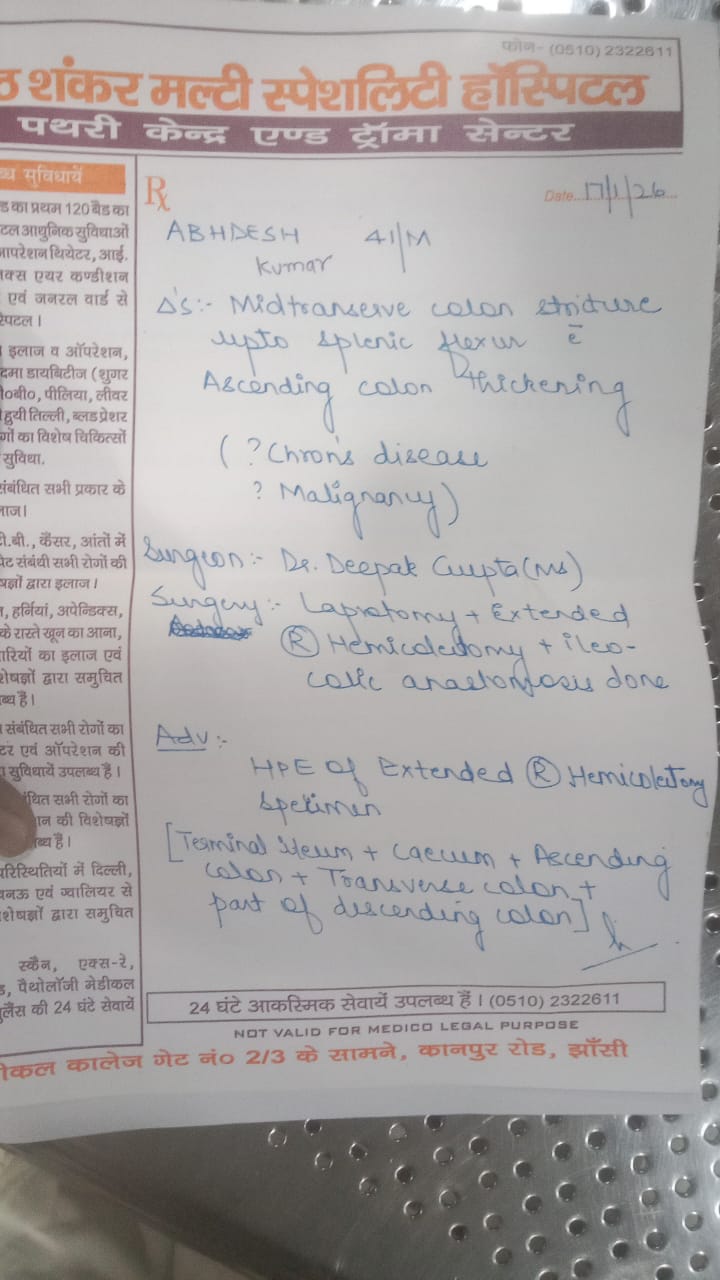 फोन- (0510) 2322611
ठ शंकर मल्टी स्पेशलिटी हॉस्पिटल
पथरी केन्द्र एण्ड ट्रॉमा सेन्टर
सुविधायें
ड का प्रथम 120 बैड का
टल आधुनिक सुविधाओं
आपरेशन थियेटर, आई.
क्स एयर कण्डीशन
एवं जनरल वार्ड से
स्पिटल।
इलाज व ऑपरेशन,
दमा डायबिटीज (शुगर
०बी०, पीलिया, लीवर
हुयी तिल्ली, ब्लड प्रेशर
गों का विशेष चिकित्सों
सुविधा.
संबंधित सभी प्रकार के
लाज।
टी.बी., कैंसर, आंतों में
पेट संबंधी सभी रोगों की
षज्ञों द्वारा इलाज।
, हर्निया, अपेन्डिक्स,
के रास्ते खून का आना,
ारियों का इलाज एवं
शेषज्ञों द्वारा समुचित
ब्ध है।
संबंधित सभी रोगों का
टर एवं ऑपरेशन की
सुविधायें उपलब्ध हैं।
बंधित सभी रोगों का
ान की विशेषज्ञों
ब्ध है।
परिस्थितियों में दिल्ली,
वनऊ एवं ग्वालियर से
शेषज्ञों द्वारा समुचित
स्कैन, एक्स-रे,
ड, पैथोलॉजी मेडीकल
ुलैंस की 24 घंटे सेवायें
Rx
Date... 17/1/26
ABHDESH 41/M
Kumar
Δ's:- Midtranserve colon stricture
upto splenic flexur c̄
Ascending colon thickening
( ? Chron's disease
? Malignancy)
Surgeon:- Dr. Deepak Gupta (MS)
Surgery:- Laprotomy + Extended
Ⓡ Hemicolectomy + ileo-
colic anastomosis done
Adv:-
HPE of Extended Ⓡ Hemicolectomy
specimen
[Terminal ileum + caecum + Ascending
colon + Transverse colon +
part of discending colon]
24 घंटे आकस्मिक सेवायें उपलब्ध हैं। (0510) 2322611
NOT VALID FOR MEDICO LEGAL PURPOSE
ेकल कालेज गेट नं० 2/3 के सामने, कानपुर रोड, झाँसी